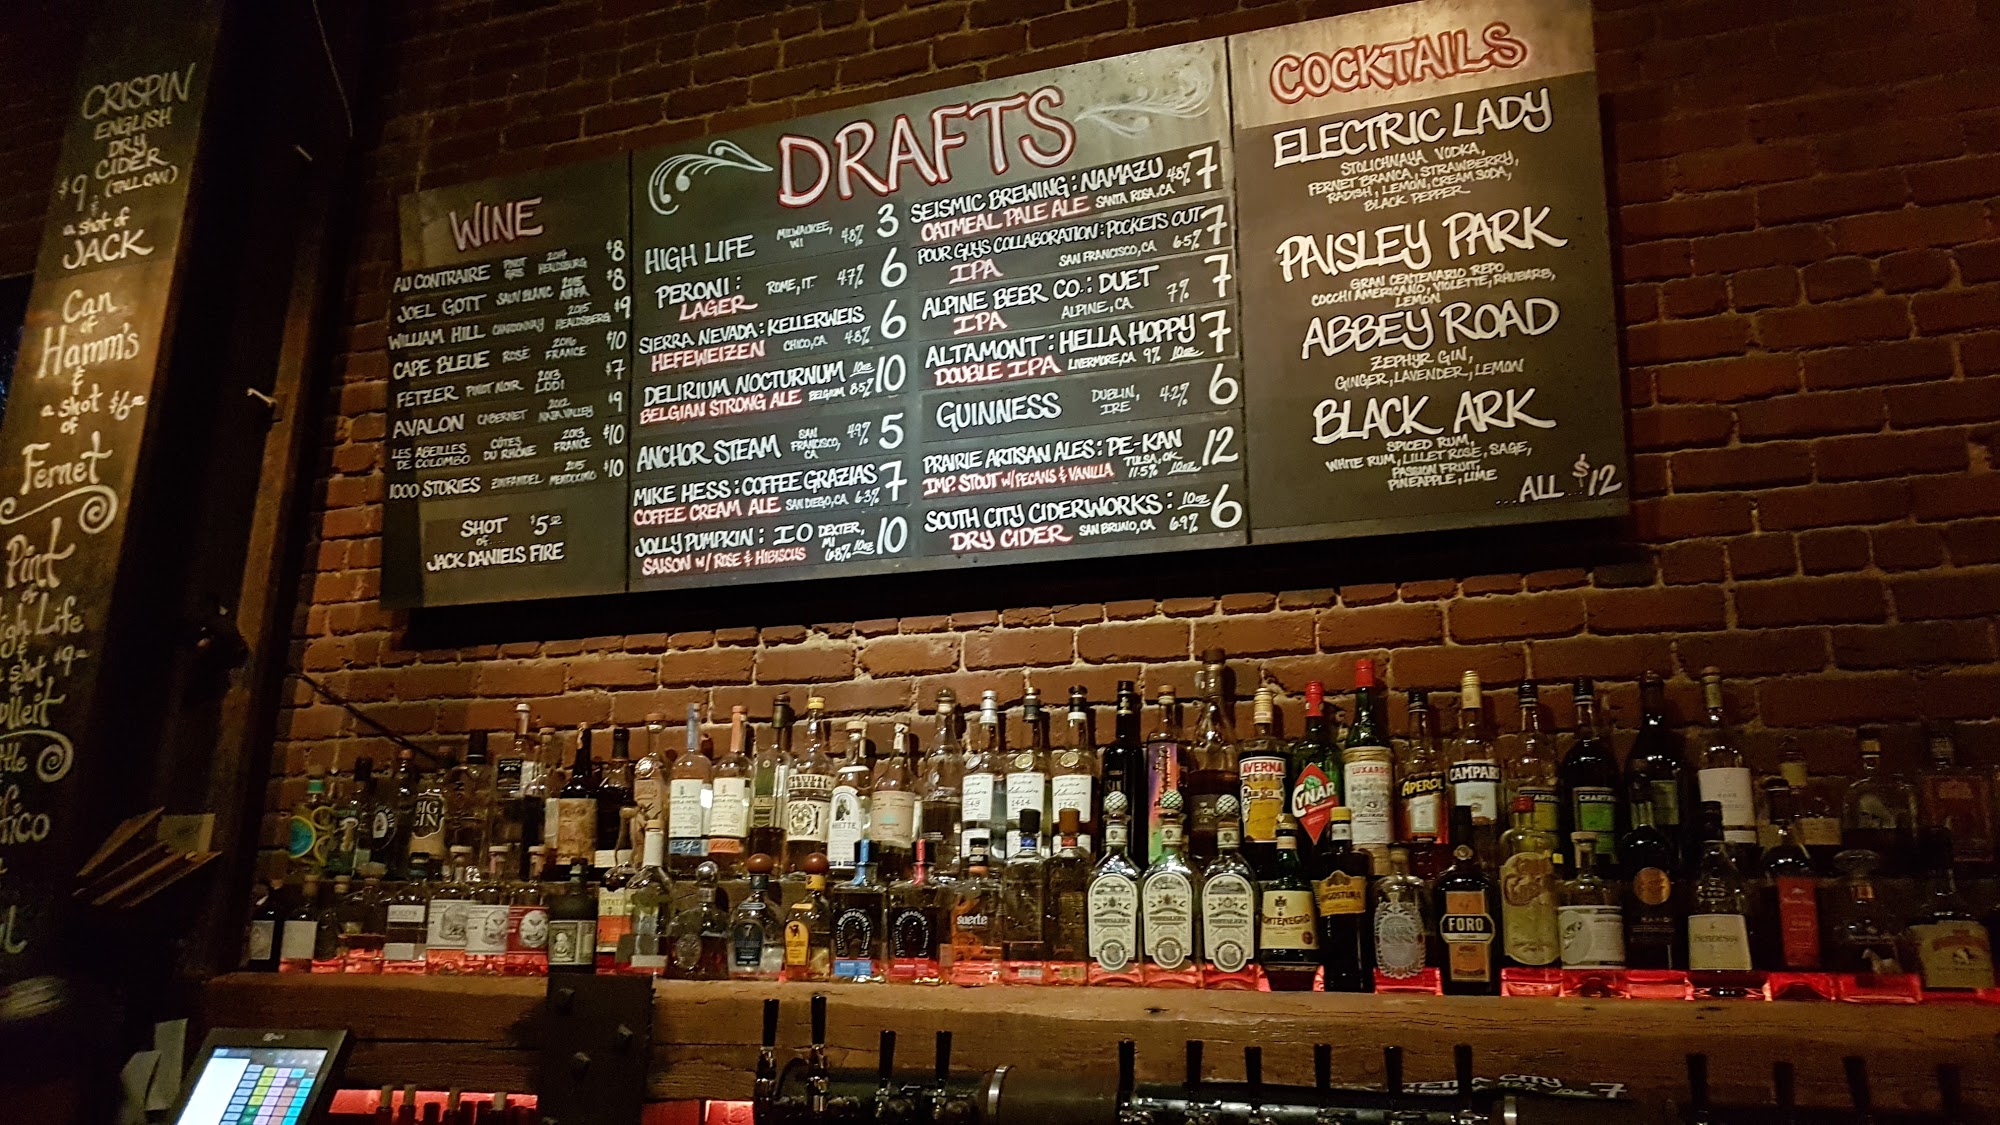 CRISPIN
ENGLISH
DRY
CIDER
$9 (TALL CAN)
&
a shot of
JACK
Can
of
Hamm's
&
a shot $6
of
Fernet
Pint
of
High Life
&
a shot $9
WINE
AU CONTRAIRE PINOT GRIS 2014 HEALDSBURG $8
JOEL GOTT SAUV BLANC 2015 NAPA $8
WILLIAM HILL CHARDONNAY 2015 HEALDSBERG $9
CAPE BLEUE ROSÉ 2016 FRANCE $10
FETZER PINOT NOIR 2013 LODI $7
AVALON CABERNET 2012 NAPA VALLEY $9
LES ABEILLES DE COLOMBO CÔTES DU RHÔNE 2013 FRANCE $10
1000 STORIES ZINFANDEL 2015 MENDOCINO $10
SHOT $5
OF...
JACK DANIELS FIRE
DRAFTS
HIGH LIFE MILWAUKEE, WI 4.8% 3
PERONI: ROME, IT. 4.7% 6
LAGER
SIERRA NEVADA: KELLERWEIS 6
HEFEWEIZEN CHICO, CA 4.8%
DELIRIUM NOCTURNUM 10oz 10
BELGIAN STRONG ALE BELGIUM 8.5%
ANCHOR STEAM SAN FRANCISCO, CA 4.9% 5
MIKE HESS: COFFEE GRAZIAS 7
COFFEE CREAM ALE SAN DIEGO, CA 6.3%
JOLLY PUMPKIN: IO DEXTER, MI 10
SAISON W/ ROSE & HIBISCUS 6.8% 10oz
SEISMIC BREWING: NAMAZU 4.8% 7
OATMEAL PALE ALE SANTA ROSA, CA
POUR GUYS COLLABORATION: POCKETS OUT 7
IPA SAN FRANCISCO, CA 6.5%
ALPINE BEER CO.: DUET 7
IPA ALPINE, CA 7%
ALTAMONT: HELLA HOPPY 7
DOUBLE IPA LIVERMORE, CA 9% 10oz
GUINNESS DUBLIN, IRE 4.2% 6
PRAIRIE ARTISAN ALES: PE-KAN 12
IMP. STOUT W/PECANS & VANILLA TULSA, OK 11.5% 10oz
SOUTH CITY CIDERWORKS: 10oz 6
DRY CIDER SAN BRUNO, CA 6.9%
COCKTAILS
ELECTRIC LADY
STOLICHNAYA VODKA,
FERNET BRANCA, STRAWBERRY,
RADISH, LEMON, CREAM SODA,
BLACK PEPPER
PAISLEY PARK
GRAN CENTENARIO REPO
COCCHI AMERICANO, VIOLETTE, RHUBARB,
LEMON
ABBEY ROAD
ZEPHYR GIN,
GINGER, LAVENDER, LEMON
BLACK ARK
SPICED RUM,
WHITE RUM, LILLET ROSE, SAGE,
PASSION FRUIT,
PINEAPPLE, LIME
...ALL...$12
BIG GIN
AVERNA
CYNAR
LUXARDO
APEROL
CAMPARI
suerte
FORTALEZA
FORTALEZA
FORTALEZA
MONTENEGRO
ANGOSTURA
FORO